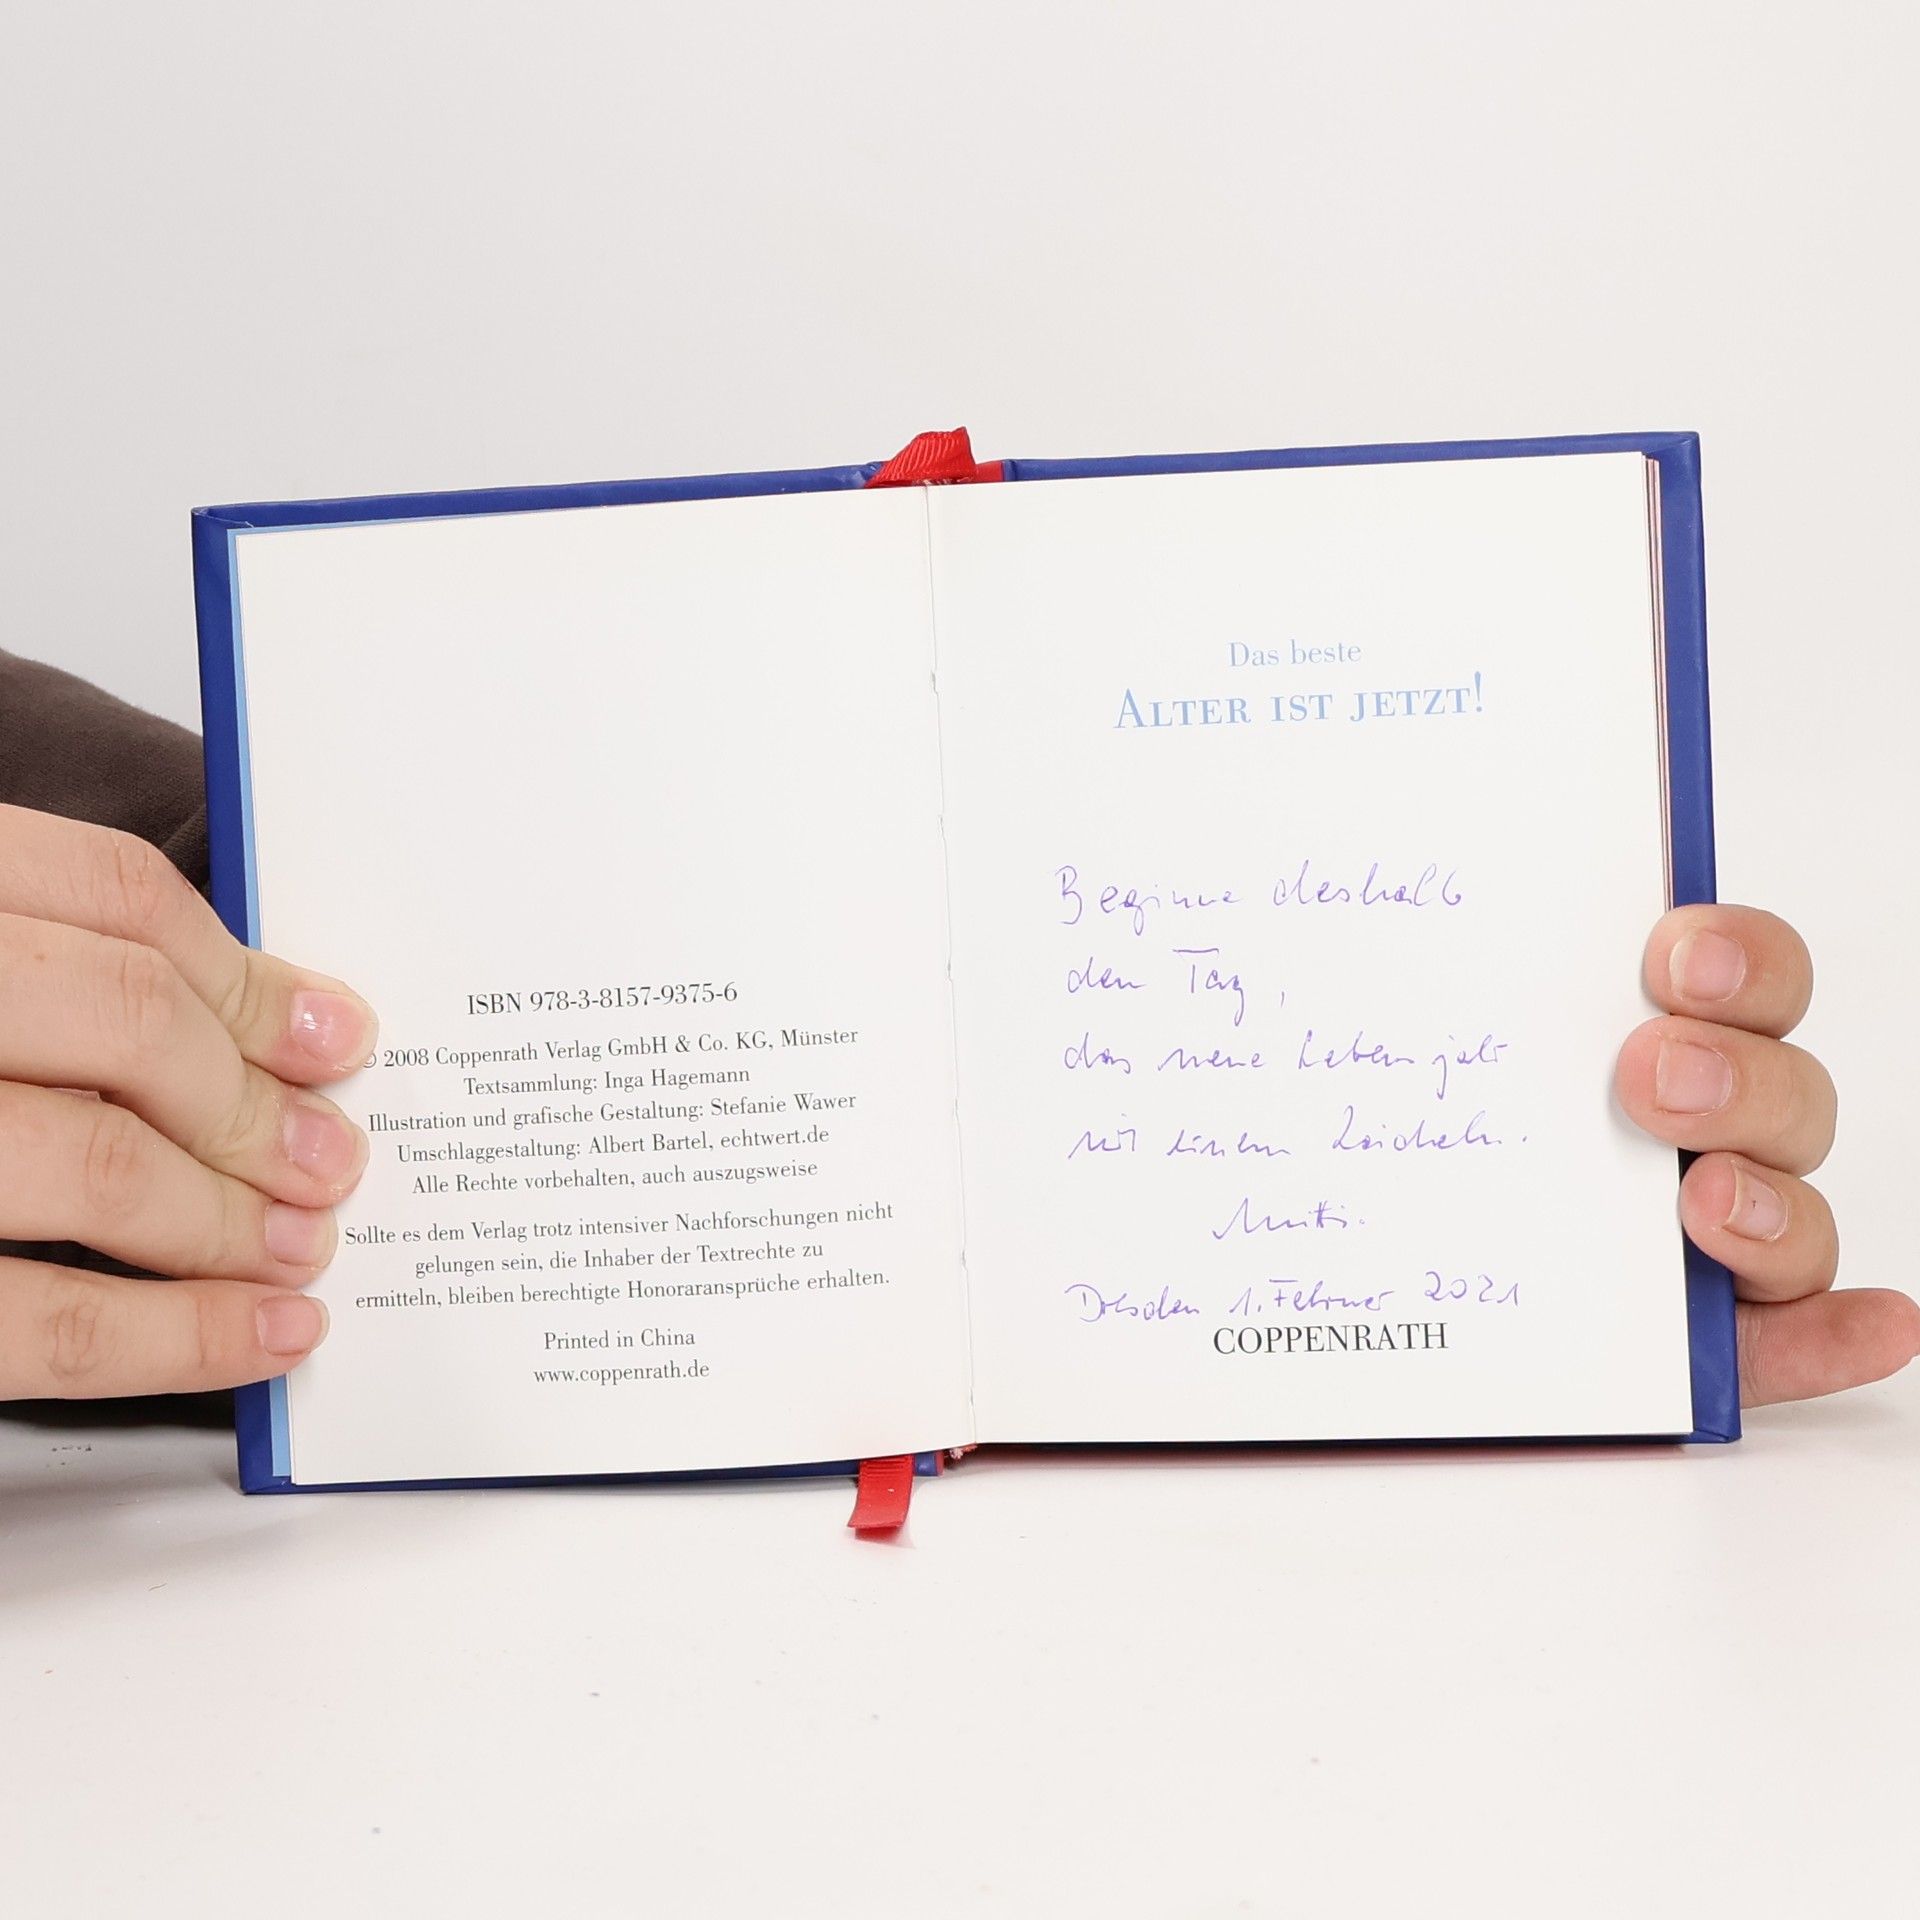 ISBN 978-3-8157-9375-6
© 2008 Coppenrath Verlag GmbH & Co. KG, Münster
Textsammlung: Inga Hagemann
Illustration und grafische Gestaltung: Stefanie Wawer
Umschlaggestaltung: Albert Bartel, echtwert.de
Alle Rechte vorbehalten, auch auszugsweise
Sollte es dem Verlag trotz intensiver Nachforschungen nicht
gelungen sein, die Inhaber der Textrechte zu
ermitteln, bleiben berechtigte Honoraransprüche erhalten.
Printed in China
www.coppenrath.de
Das beste
ALTER IST JETZT!
Beginne deshalb
den Tag,
das neue Lebensjahr
mit einem Lächeln.
Dresden 1. Februar 2021
COPPENRATH